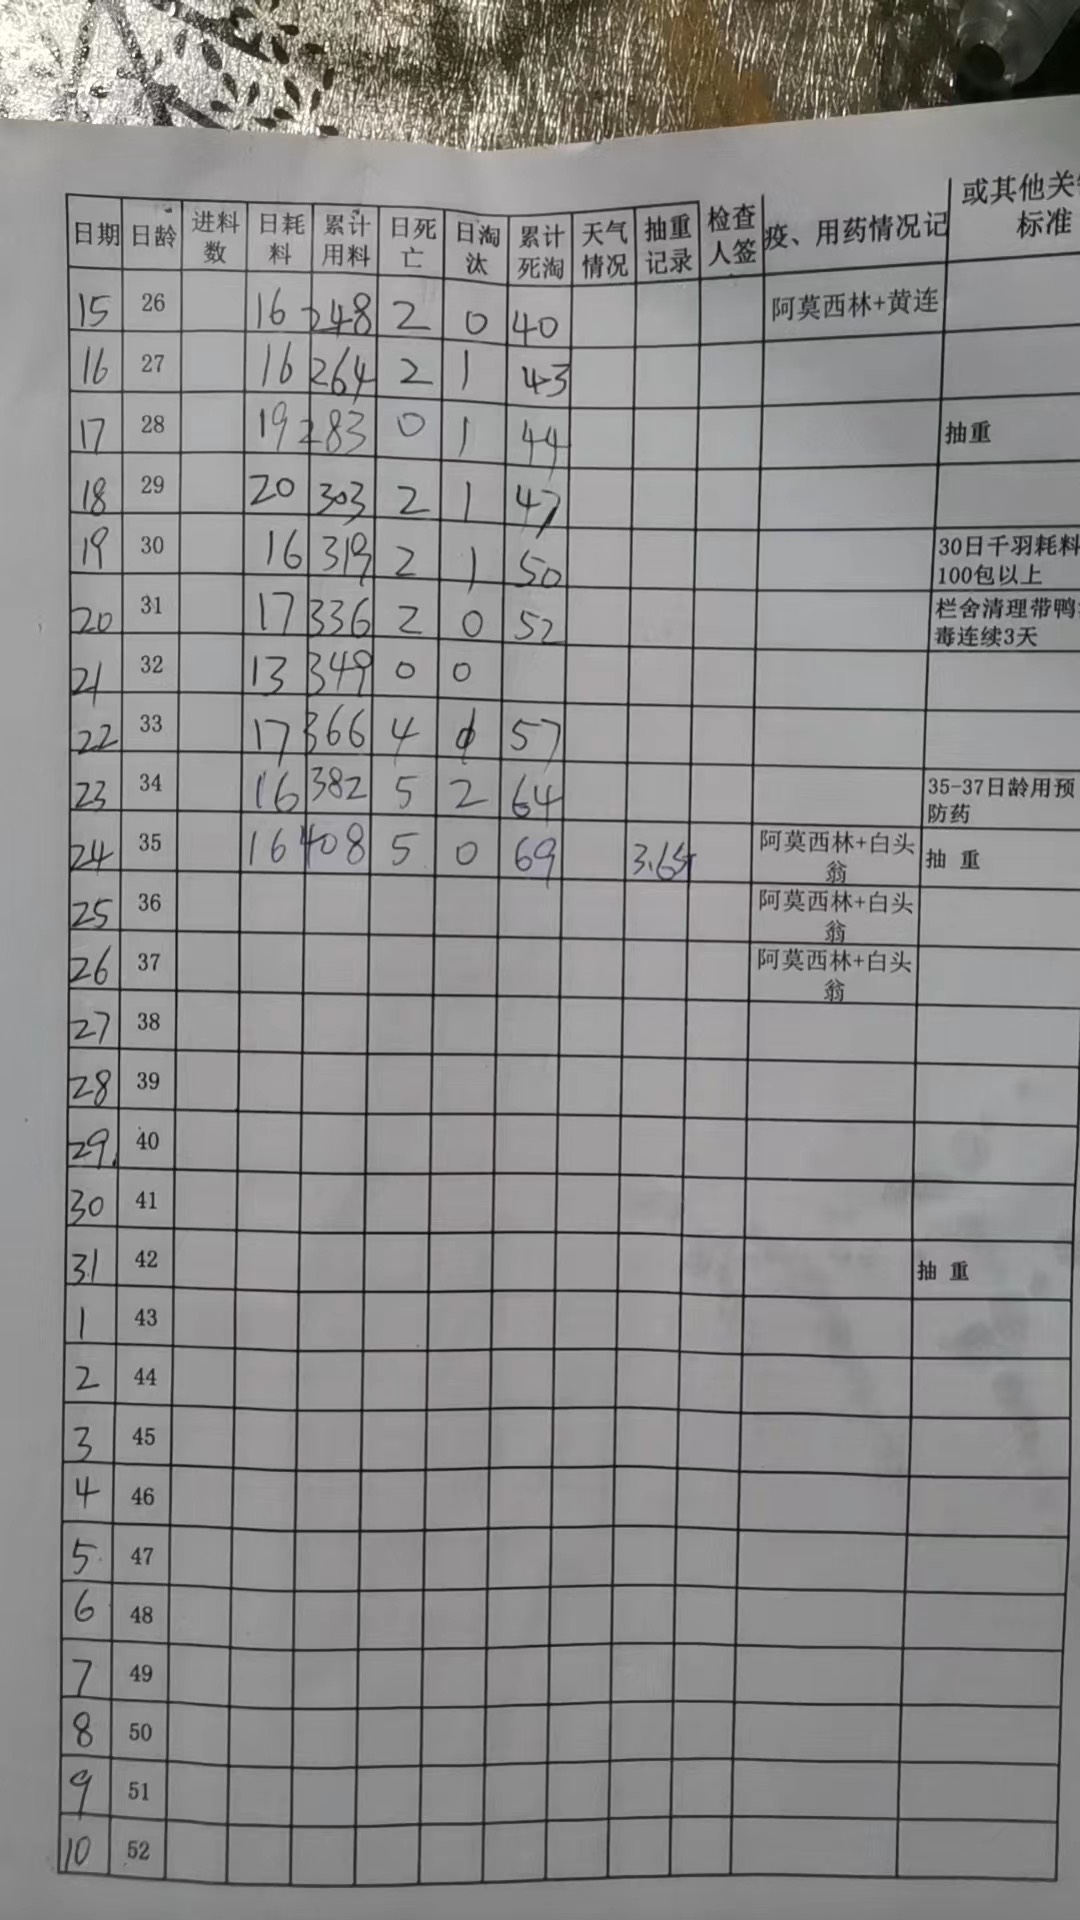 日期 日龄 进料数 日耗料 累计用料 日死亡 日淘汰 累计死淘 天气情况 抽重记录 检查人签 疫、用药情况记 或其他关 标准
15 26 16 248 2 0 40 阿莫西林+黄连
16 27 16 264 2 1 43
17 28 19 283 0 1 44 抽重
18 29 20 303 2 1 47
19 30 16 319 2 1 50 30日千羽耗料100包以上
20 31 17 336 2 0 52 栏舍清理带鸭 毒连续3天
21 32 13 349 0 0
22 33 17 366 4 57
23 34 16 382 5 2 64 35-37日龄用预防药
24 35 16 408 5 0 69 3.65 阿莫西林+白头翁 抽 重
25 36 阿莫西林+白头翁
26 37 阿莫西林+白头翁
27 38
28 39
29. 40
30 41
31 42 抽 重
1 43
2 44
3 45
4 46
5 47
6 48
7 49
8 50
9 51
10 52